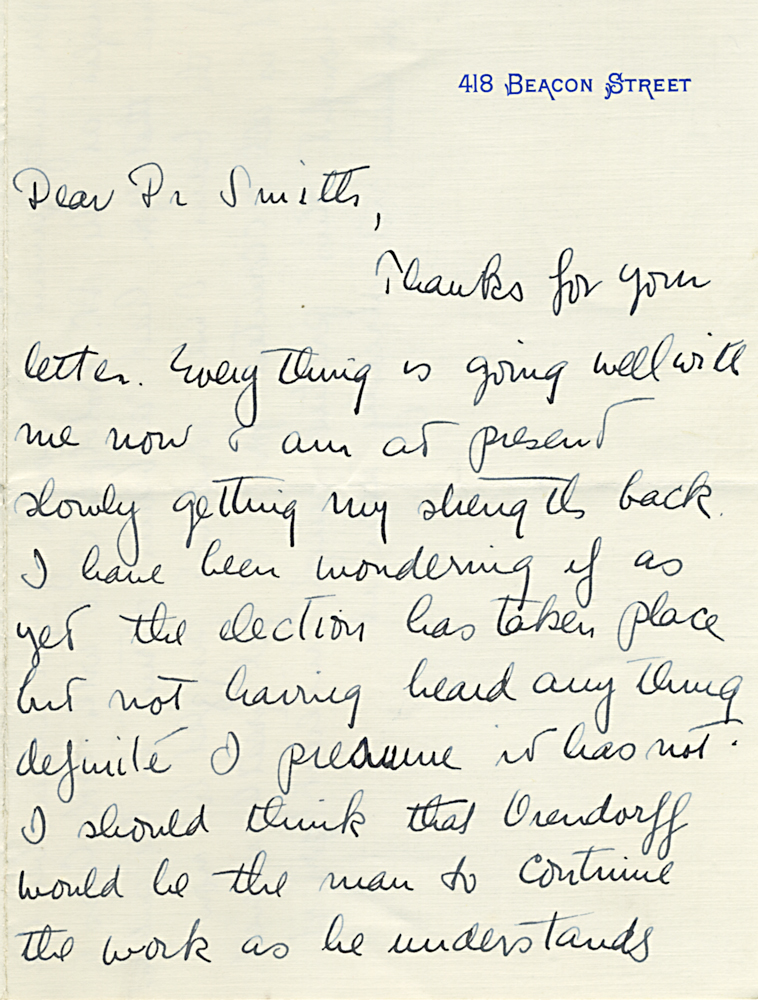 418 BEACON STREET
Dear Dr Smith,
Thanks for your
letter. Everything is going well with
me now & am at present
slowly getting my strength back.
I have been wondering if as
yet the election has taken place
but not having heard any thing
definite I presume it has not.
I should think that Orendorff
would be the man to continue
the work as he understands